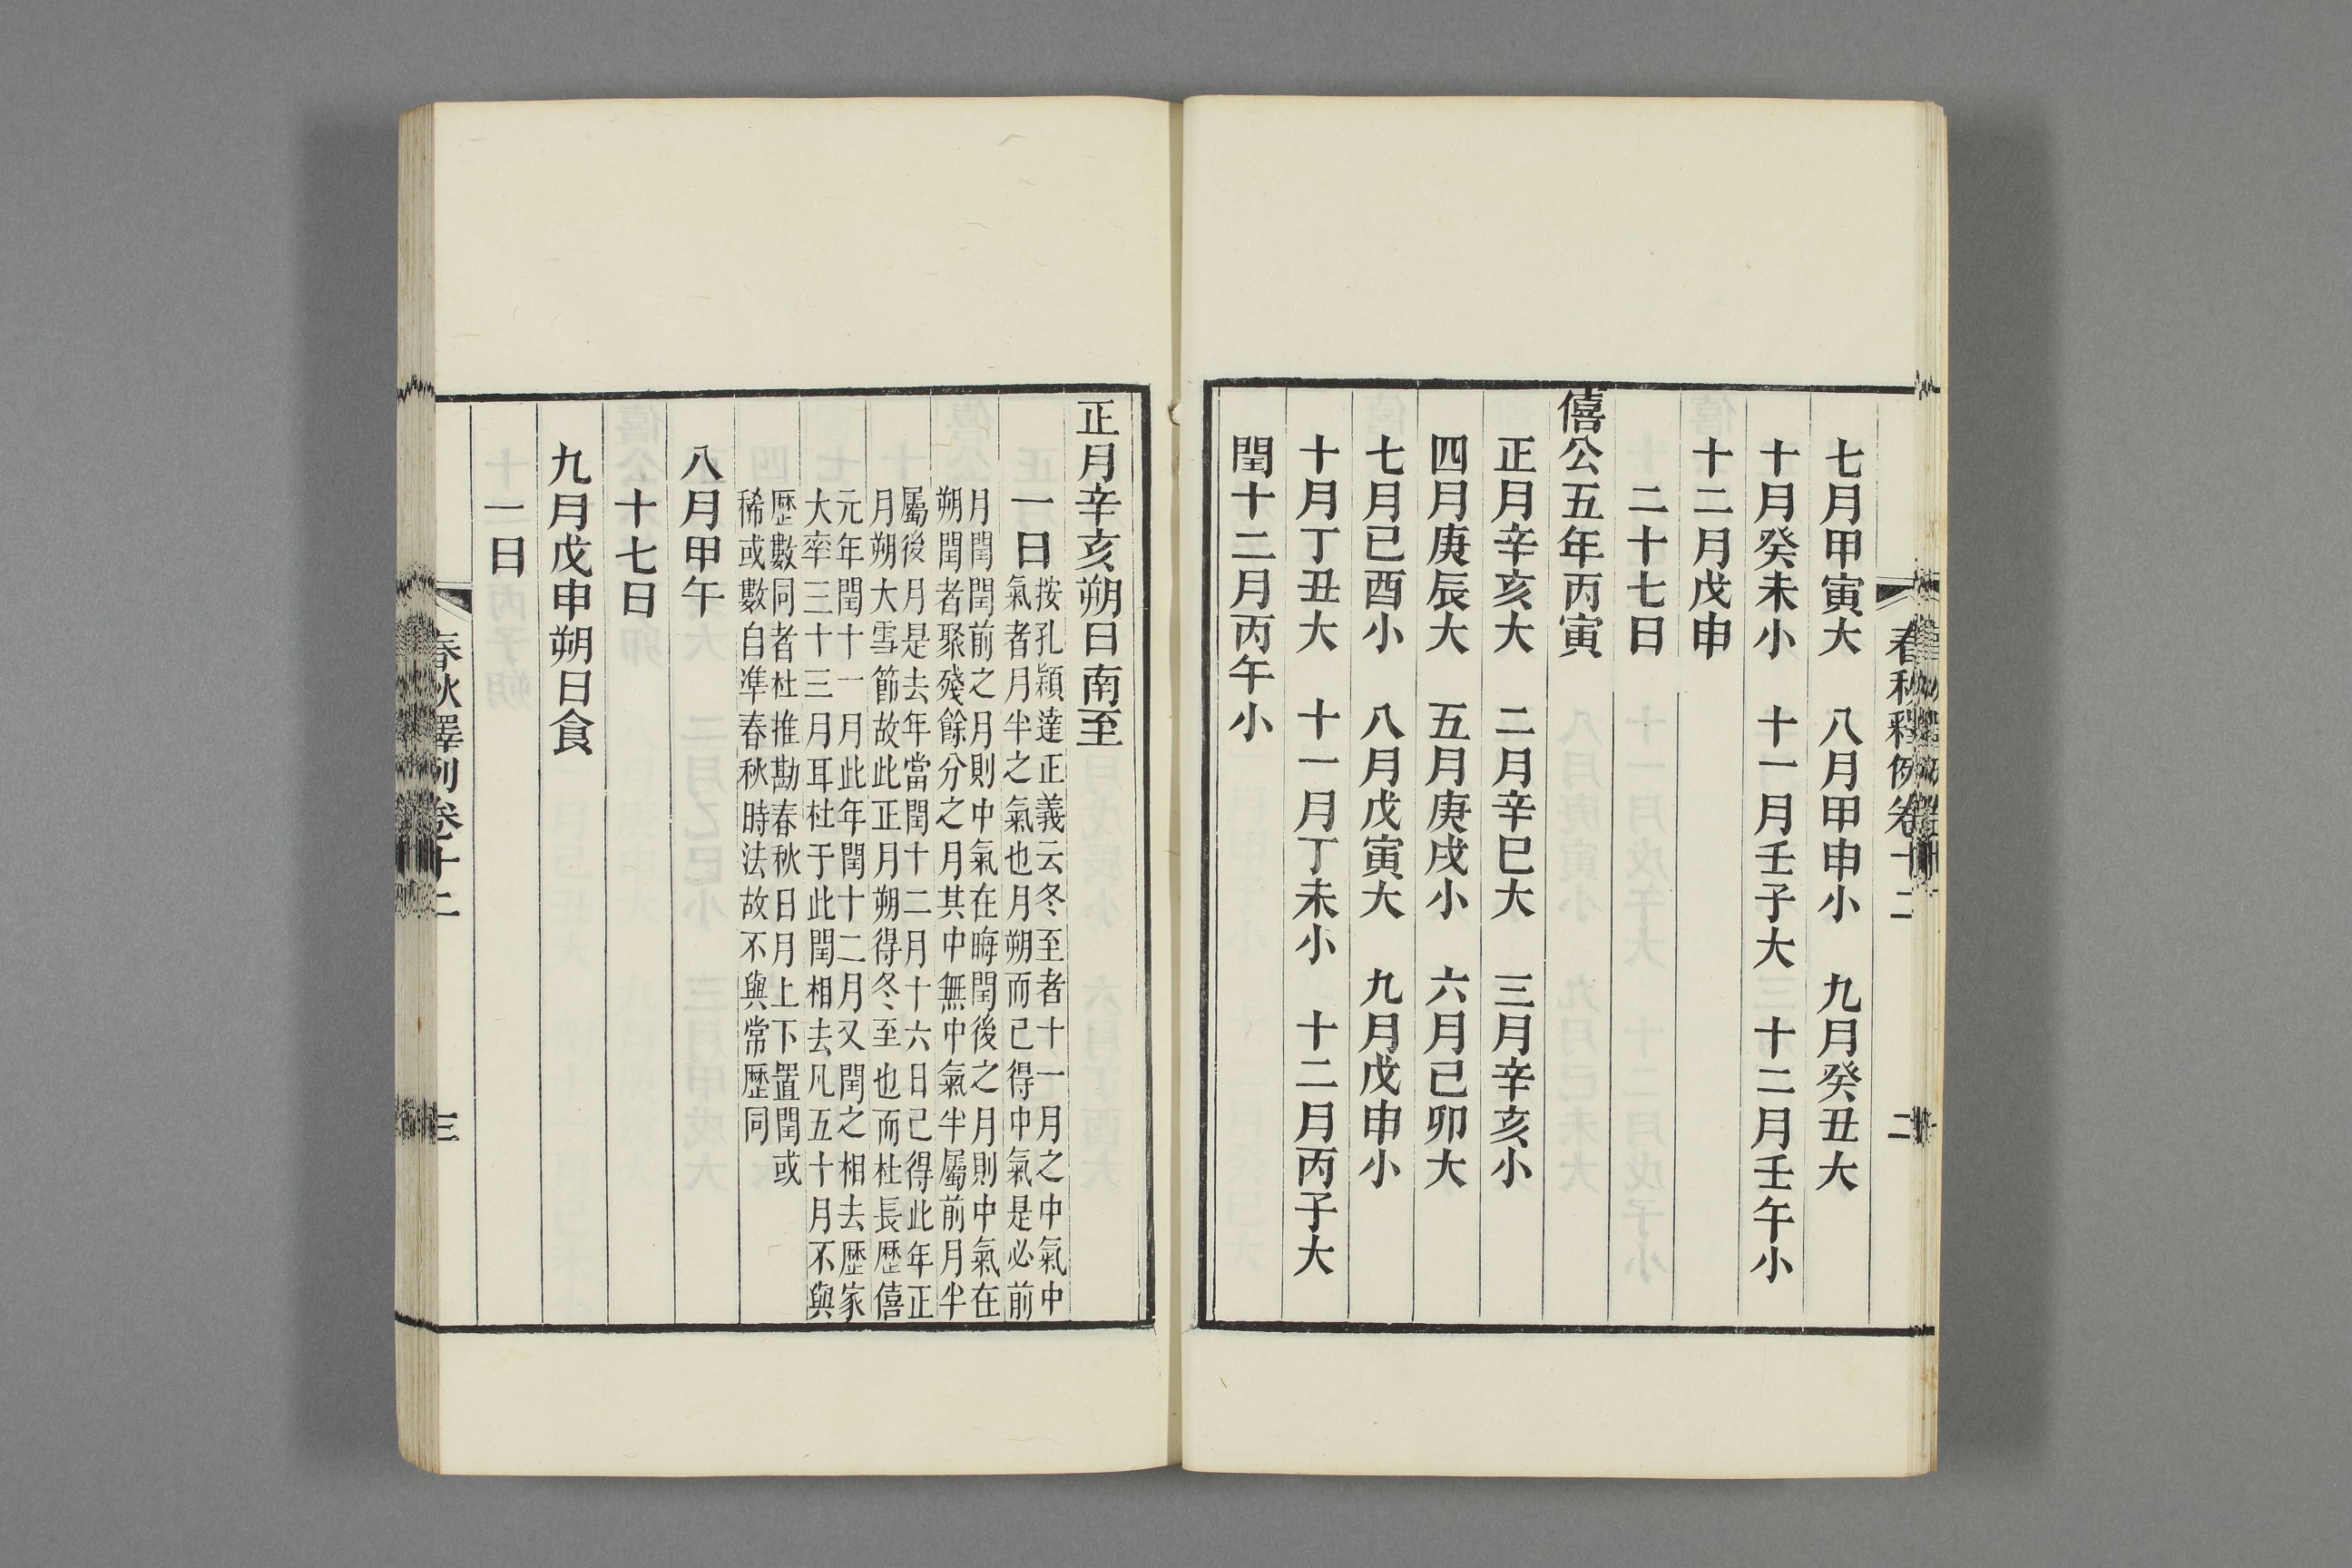 春秋釋例卷十二
二
七月甲寅大　八月甲申小　九月癸丑大
十月癸未小　十一月壬子大　十二月壬午小
十二月戊申
二十七日
僖公五年丙寅
正月辛亥大　二月辛巳大　三月辛亥小
四月庚辰大　五月庚戌小　六月己卯大
七月己酉小　八月戊寅大　九月戊申小
十月丁丑大　十一月丁未小　十二月丙子大
閏十二月丙午小
正月辛亥朔日南至
一日按孔穎達正義云冬至者十一月之中氣中
氣者月半之氣也月朔而己得中氣是必前
月閏閏前之月則中氣在晦閏後之月則中氣在
朔閏者聚殘餘分之月其中無中氣半屬前月半
屬後月是去年當閏十二月十六日己得此年正
月朔大雪節故此正月朔得冬至也而杜長歷僖
元年閏十一月此年閏十二月又閏之相去歷家
大率三十三月耳杜于此閏相去凡五十月不與
歷數同者杜推勘春秋日月上下置閏或
稀或數自凖春秋時法故不與常歷同
八月甲午
十七日
九月戊申朔日食
一日
春秋釋例卷十二
三